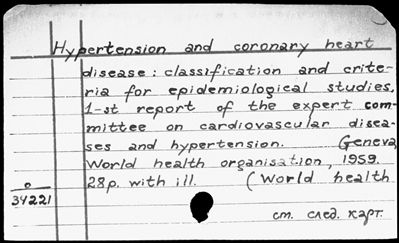 Hypertension and coronary heart
disease: classification and crite-
ria for epidemiological studies.
1-st report of the expert com-
mittee on cardiovascular disea-
ses and hypertension. Geneva,
World health organisation, 1959.
28p. with ill. (World health
0
34221
ст. след. карт.